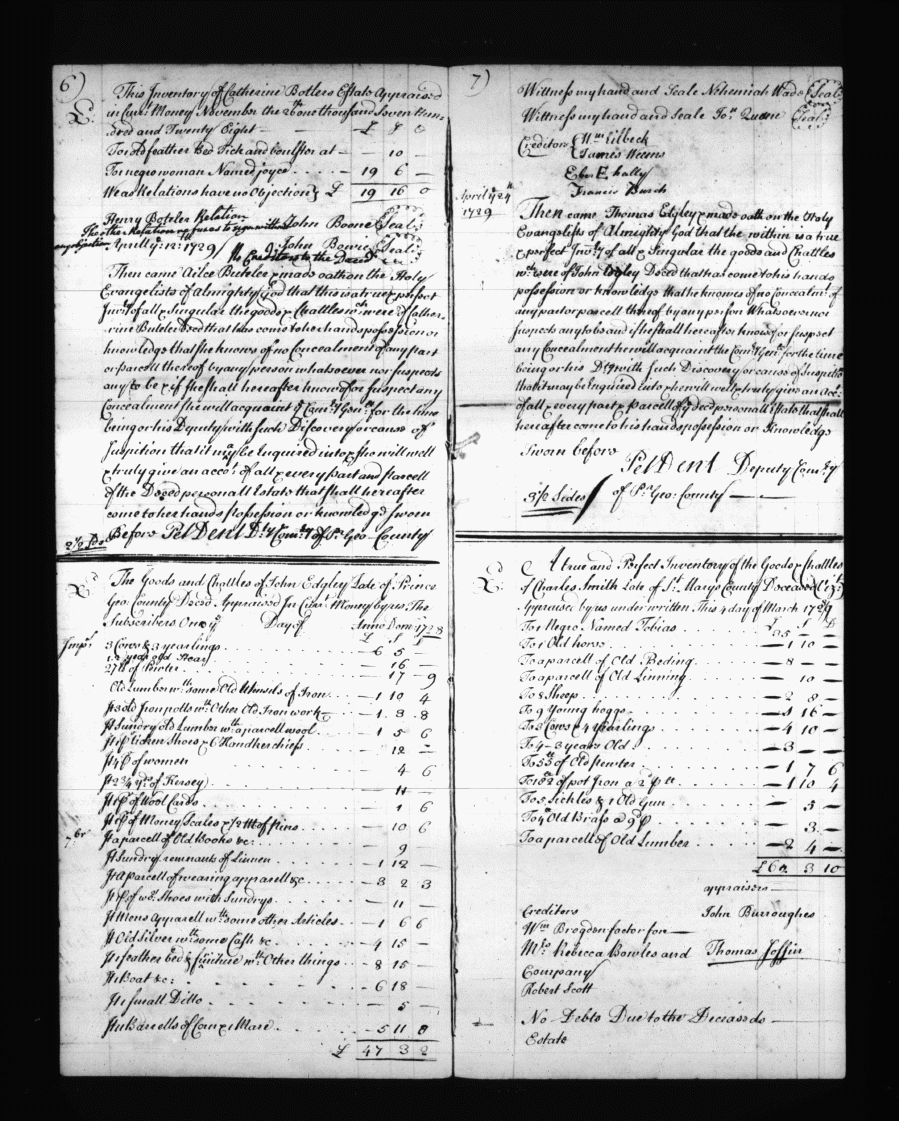 6)
This Inventory of Catherine Botlers Estate Appraised
in Curt. Money November the 26 one thousand Seven Hun-
dred and Twenty Eight — £ s d
To 1 Old feather Bed Tick and boulster at — — 10 —
To 1 negro woman Named Joyce . . . . — 19 6 —
We as Relations have no Objection } £ 19 16 0
Henry Boteler Relation
The other Relation refuses to sign without
any obligation
John Boone Seal
John Bowie Seal
Aprill ye 12th 1729 // No Creditors to the Deced
Then came Alce Buteler & made oath on the Holy
Evangelists of Almighty God that this is a true & perfect
Invry of all & Singular the goods & Chattles wch were of Cather-
rine Buteler Deced that has come to her hands possession or
knowledge that she knows of no Concealment of any part
or parcell thereof by any person whatsoever nor suspects
any to be & if she shall hereafter know of or suspect any
Concealment she will acquaint ye Comry Genll for the time
being or his Deputy with such Discovery or cause of
Suspition that it may be Enquired into & she will well
& truly give an acct. of all & every part and parcell
of the Deced personall Estate that shall hereafter
come to her hands possession or knowledge Sworn
Before Pet Dent Dty Comry of Pr Geo County
2 1/2 Sds
The Goods and Chattles of John Edgley Late of Prince
Geo: County Deced Appraised In Curt. Money by us The
Subscribers On ye Day of Anno Dom: 1728
£ S
Imps 3 Cows & 3 yearlings . . . — 6 5
1 2 year old Stear — 16 —
27 lb of Pewter . . — 17 — 9
Old Lumber wth some Old Utensils of Iron . . . — 1 10 4
It 3 old Iron potts wth Other Old Iron work . . — 1 3 8
It Sundry old Lumber wth a parcell wool . . — 1 5 6
It 1 pr of mens Shoes & 6 Handkerchiefs . . . — 12 —
It 4 pr of women 4 6
It 2 3/4 yds of Kersey) . . . . 11 —
It 1 pr of Wool Cards . . . . 1 6
It 1 pr of Money Scales & 1/2 M of pins . . . . 10 6
7br It a parcell of Old Books &c: . . . . 9 —
It Sundry remnants of Linnen . . . . — 1 12 —
It A parcell of wearing apparell &c . . . — 3 2 3
It 1 pr of wo. Shoes with Sundrys . . . — 11 —
It Mens Apparell wth some other Articles . . — 1 6 6
It Old Silver wth some Cash &c . . . — 4 15 —
It 1 feather bed & furniture wth Other things . . . — 8 15 —
It 1 Boat &c: . . . . 6 18 —
It 1 small Ditto . . . . 5
It 11 Barrells of Corn & 1 Mare . . . . — 5 11 8
£ 47 3 2
7)
Wittness my hand and Seale Nehemiah Wade Seal
Wittness my hand and Seale Jos. Queen Seal
Creditors { Wm Eilbeck
James Weems
Eben E hally
Francis Burch
Aprill ye 24th
1729
Then came Thomas Edgley & made oath on the Holy
Evangelists of Almighty God that the within is a true
& perfect Invry of all & Singular the goods and Chattles
wch were of John Edgley Deced that has come to his hands
possession or knowledge that he knows of no Concealmt of
any part or parcell thereof by any person Whatsoever nor
suspects any to be and if he shall hereafter know of or suspect
any Concealment he will acquaint the Comry Genll for the time
being or his Dty with such Discovery or cause of Suspition
that it may be Enquired into & he will well & truly give an Acct
of all & every part & parcell of ye Deced personall Estate that shall
hereafter come to his hands possession or Knowledge
Sworn before
Pet Dent Deputy Comry
of Pr Geo: County —
3 1/2 Sides
A true and Perfect Inventory of the Goods & Chattles
of Charles Smith Late of St Marys County Deceased
Appraised by us under written This 4 day of March 1728/9
£ S D
To 1 Negro Named Tobias . . . . 35 — —
To 1 Old horse . . . . — 1 10 —
To a parcell of Old Beding . . . . — 8 — —
To a parcell of Old Linning . . . . — 10 —
To 8 Sheep . . . . — 2 8 —
To 9 Young hoggs . . . . — 1 16 —
To 3 Cows & 4 Yearlings . . . . — 4 10 —
To 4 - 3 years Old . . . . — 3 — —
To 55 lb of Old pewter . . . . — 1 7 6
To 182 of pot Iron a 2d p lb . . . . — 1 10 4
To 5 Sickles & 1 Old Gun . . . . — 5 —
To 4 lb Old Brass a 9d p . . . . 3 —
To a parcell of Old Lumber . . . . — 2 4 —
£ 62 3 10
appraisers —
Creditors John Burroughes
Wm Brogden factor for —
Mrs Rebecca Bowles and Thomas Joffin
Company
Robert Scott
No Debts Due to the Deceaseds —
Estate